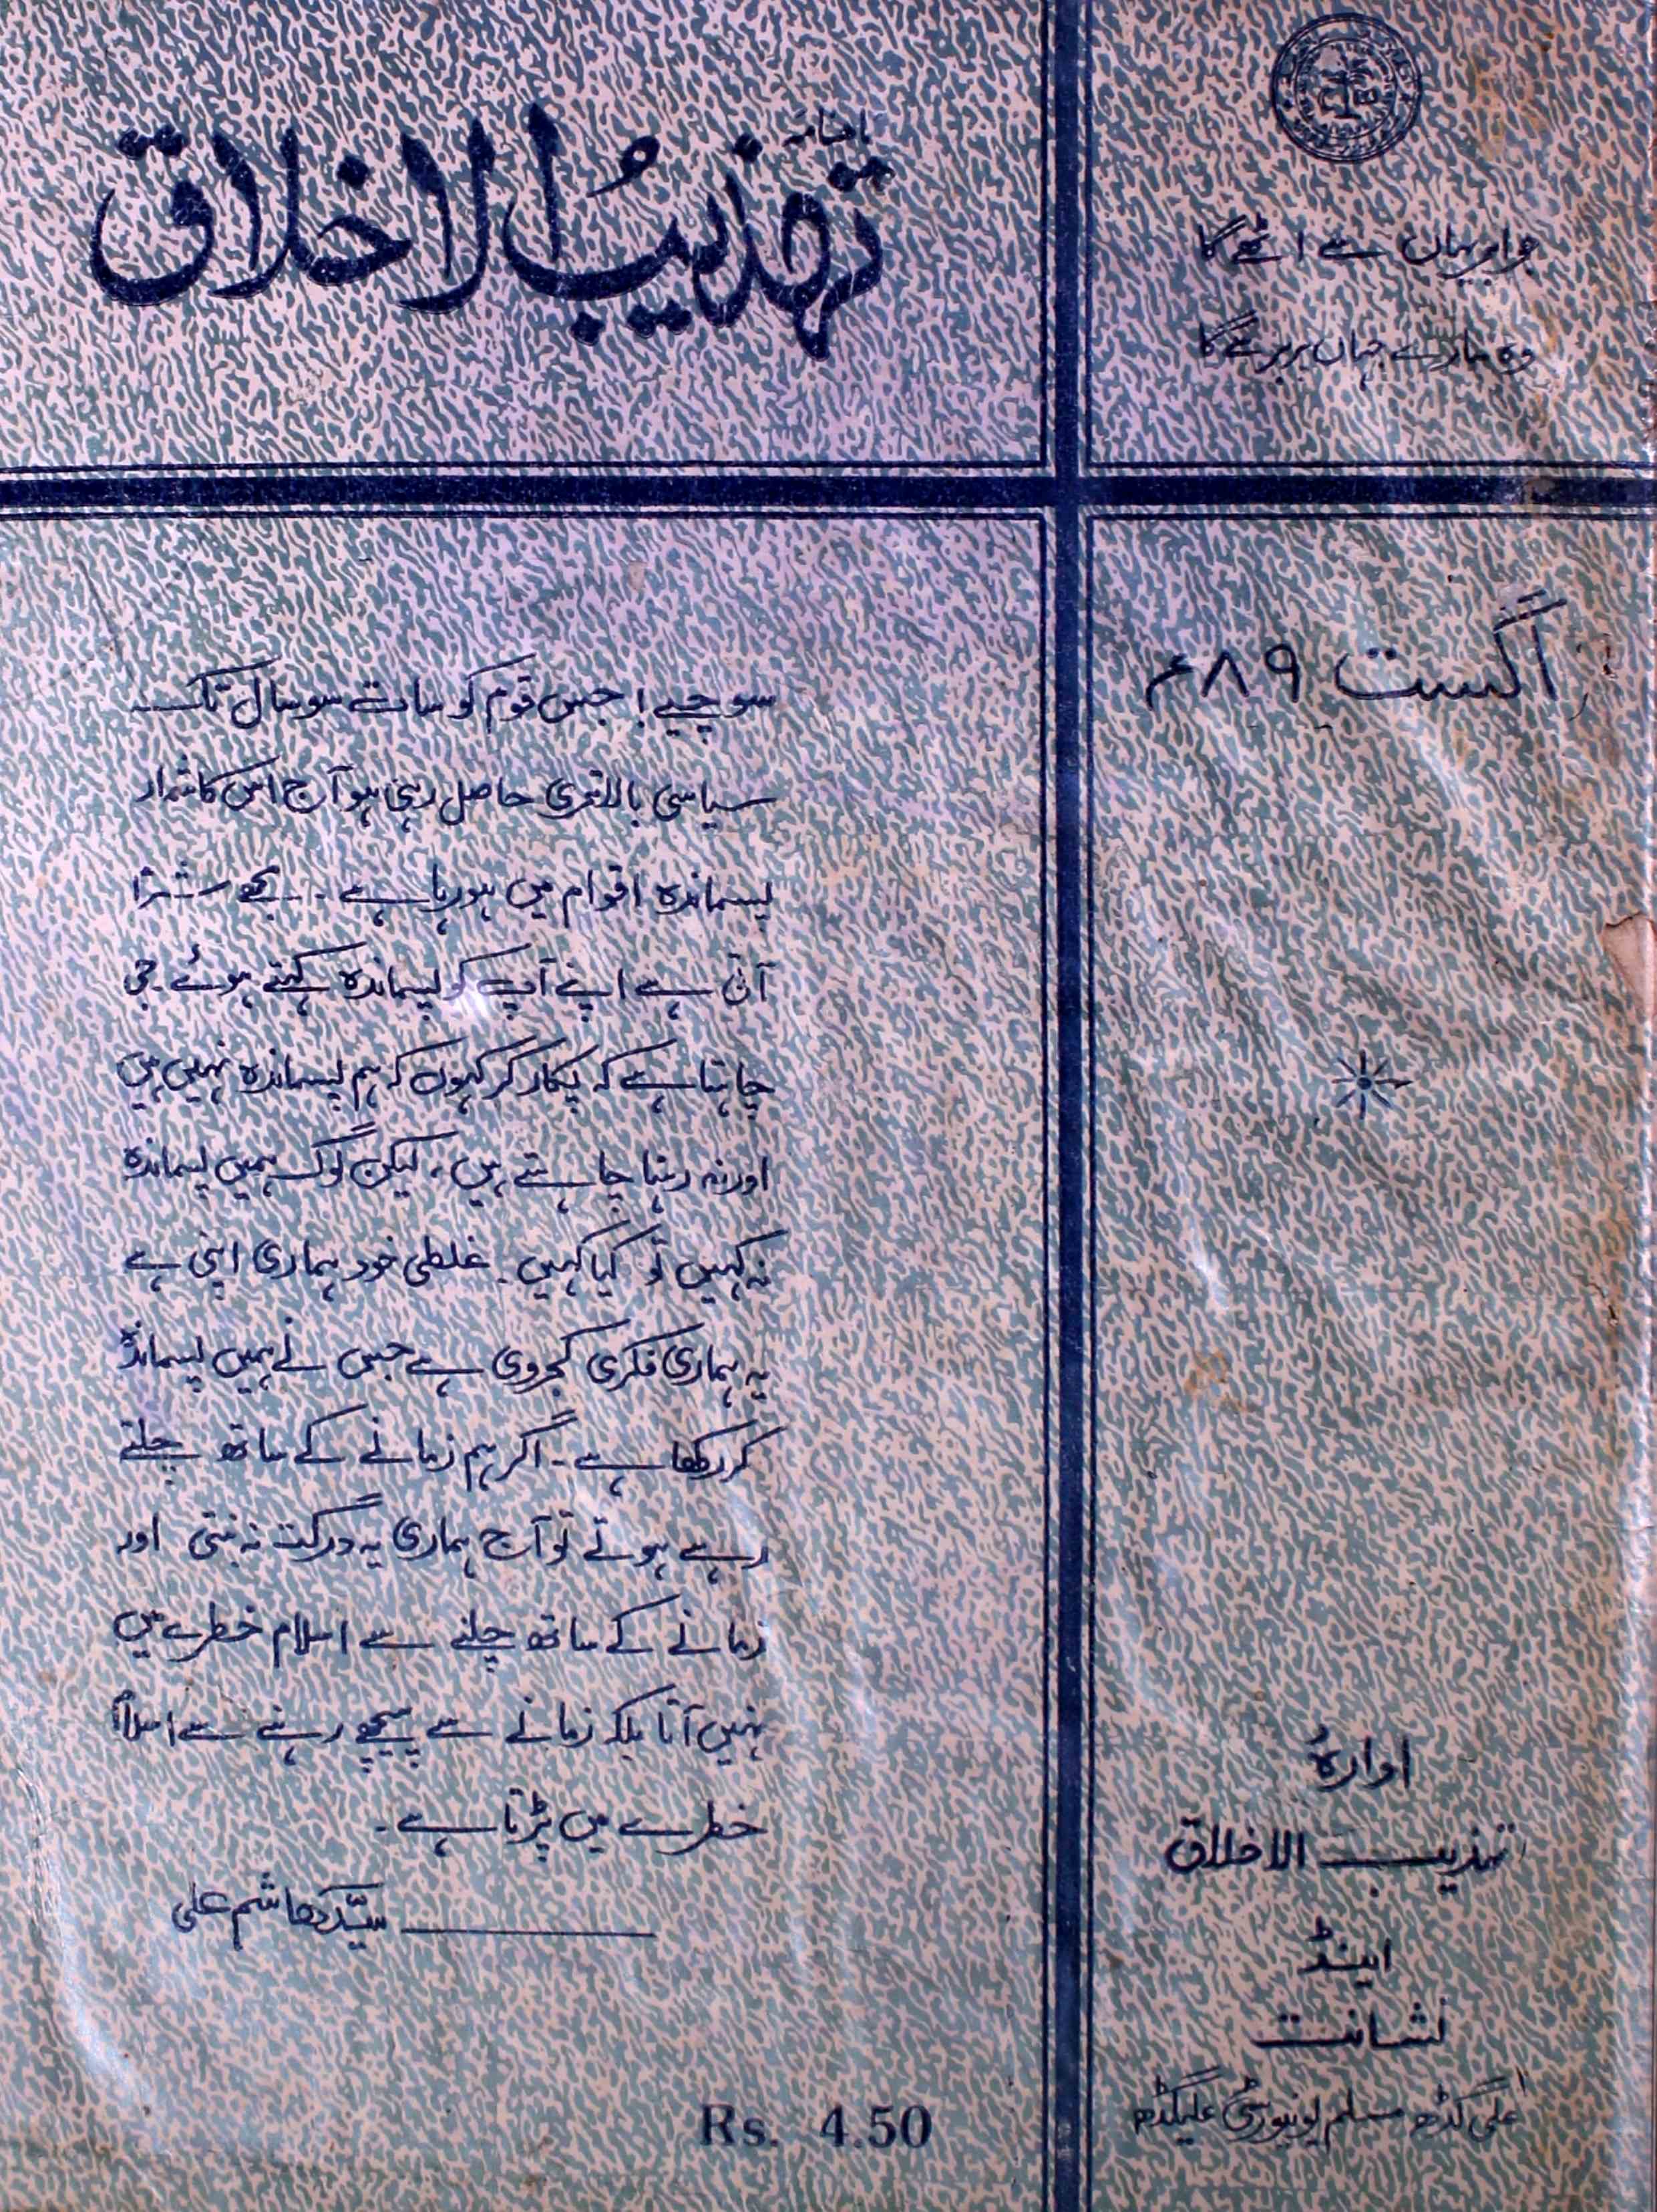 جو ابر یہاں سے اٹھے گا
وہ سارے جہاں پر برسے گا
ماہنامہ
تہذیبُ الاخلاق
اگست ۸۹ء
سوچیے! جس قوم کو سات سو سال تک
سیاسی بالاتری حاصل رہی ہو آج اس کا شمار
پسماندہ اقوام میں ہورہا ہے۔ مجھے شرم
آتی ہے اپنے آپ کو پسماندہ کہتے ہوئے۔ جی
چاہتا ہے کہ پکار کر کہوں کہ ہم پسماندہ نہیں ہیں
اور نہ رہنا چاہتے ہیں، لیکن لوگ ہمیں پسماندہ
نہ کہیں تو کیا کہیں۔ غلطی خود ہماری اپنی ہے
یہ ہماری فکری کجروی ہے جس نے ہمیں پسماندہ
کر رکھا ہے۔ اگر ہم زمانے کے ساتھ چلتے
رہے ہوتے تو آج ہماری یہ درگت نہ بنتی اور
زمانے کے ساتھ چلنے سے اسلام خطرے میں
نہیں آتا بلکہ زمانے سے پیچھے رہنے سے اسلام
خطرے میں پڑتا ہے۔
سیّد ہاشم علی
ادارۂ
تہذیب الاخلاق
اینڈ
نشانت
علی گڑھ مسلم یونیورسٹی علیگڑھ
Rs. 4.50